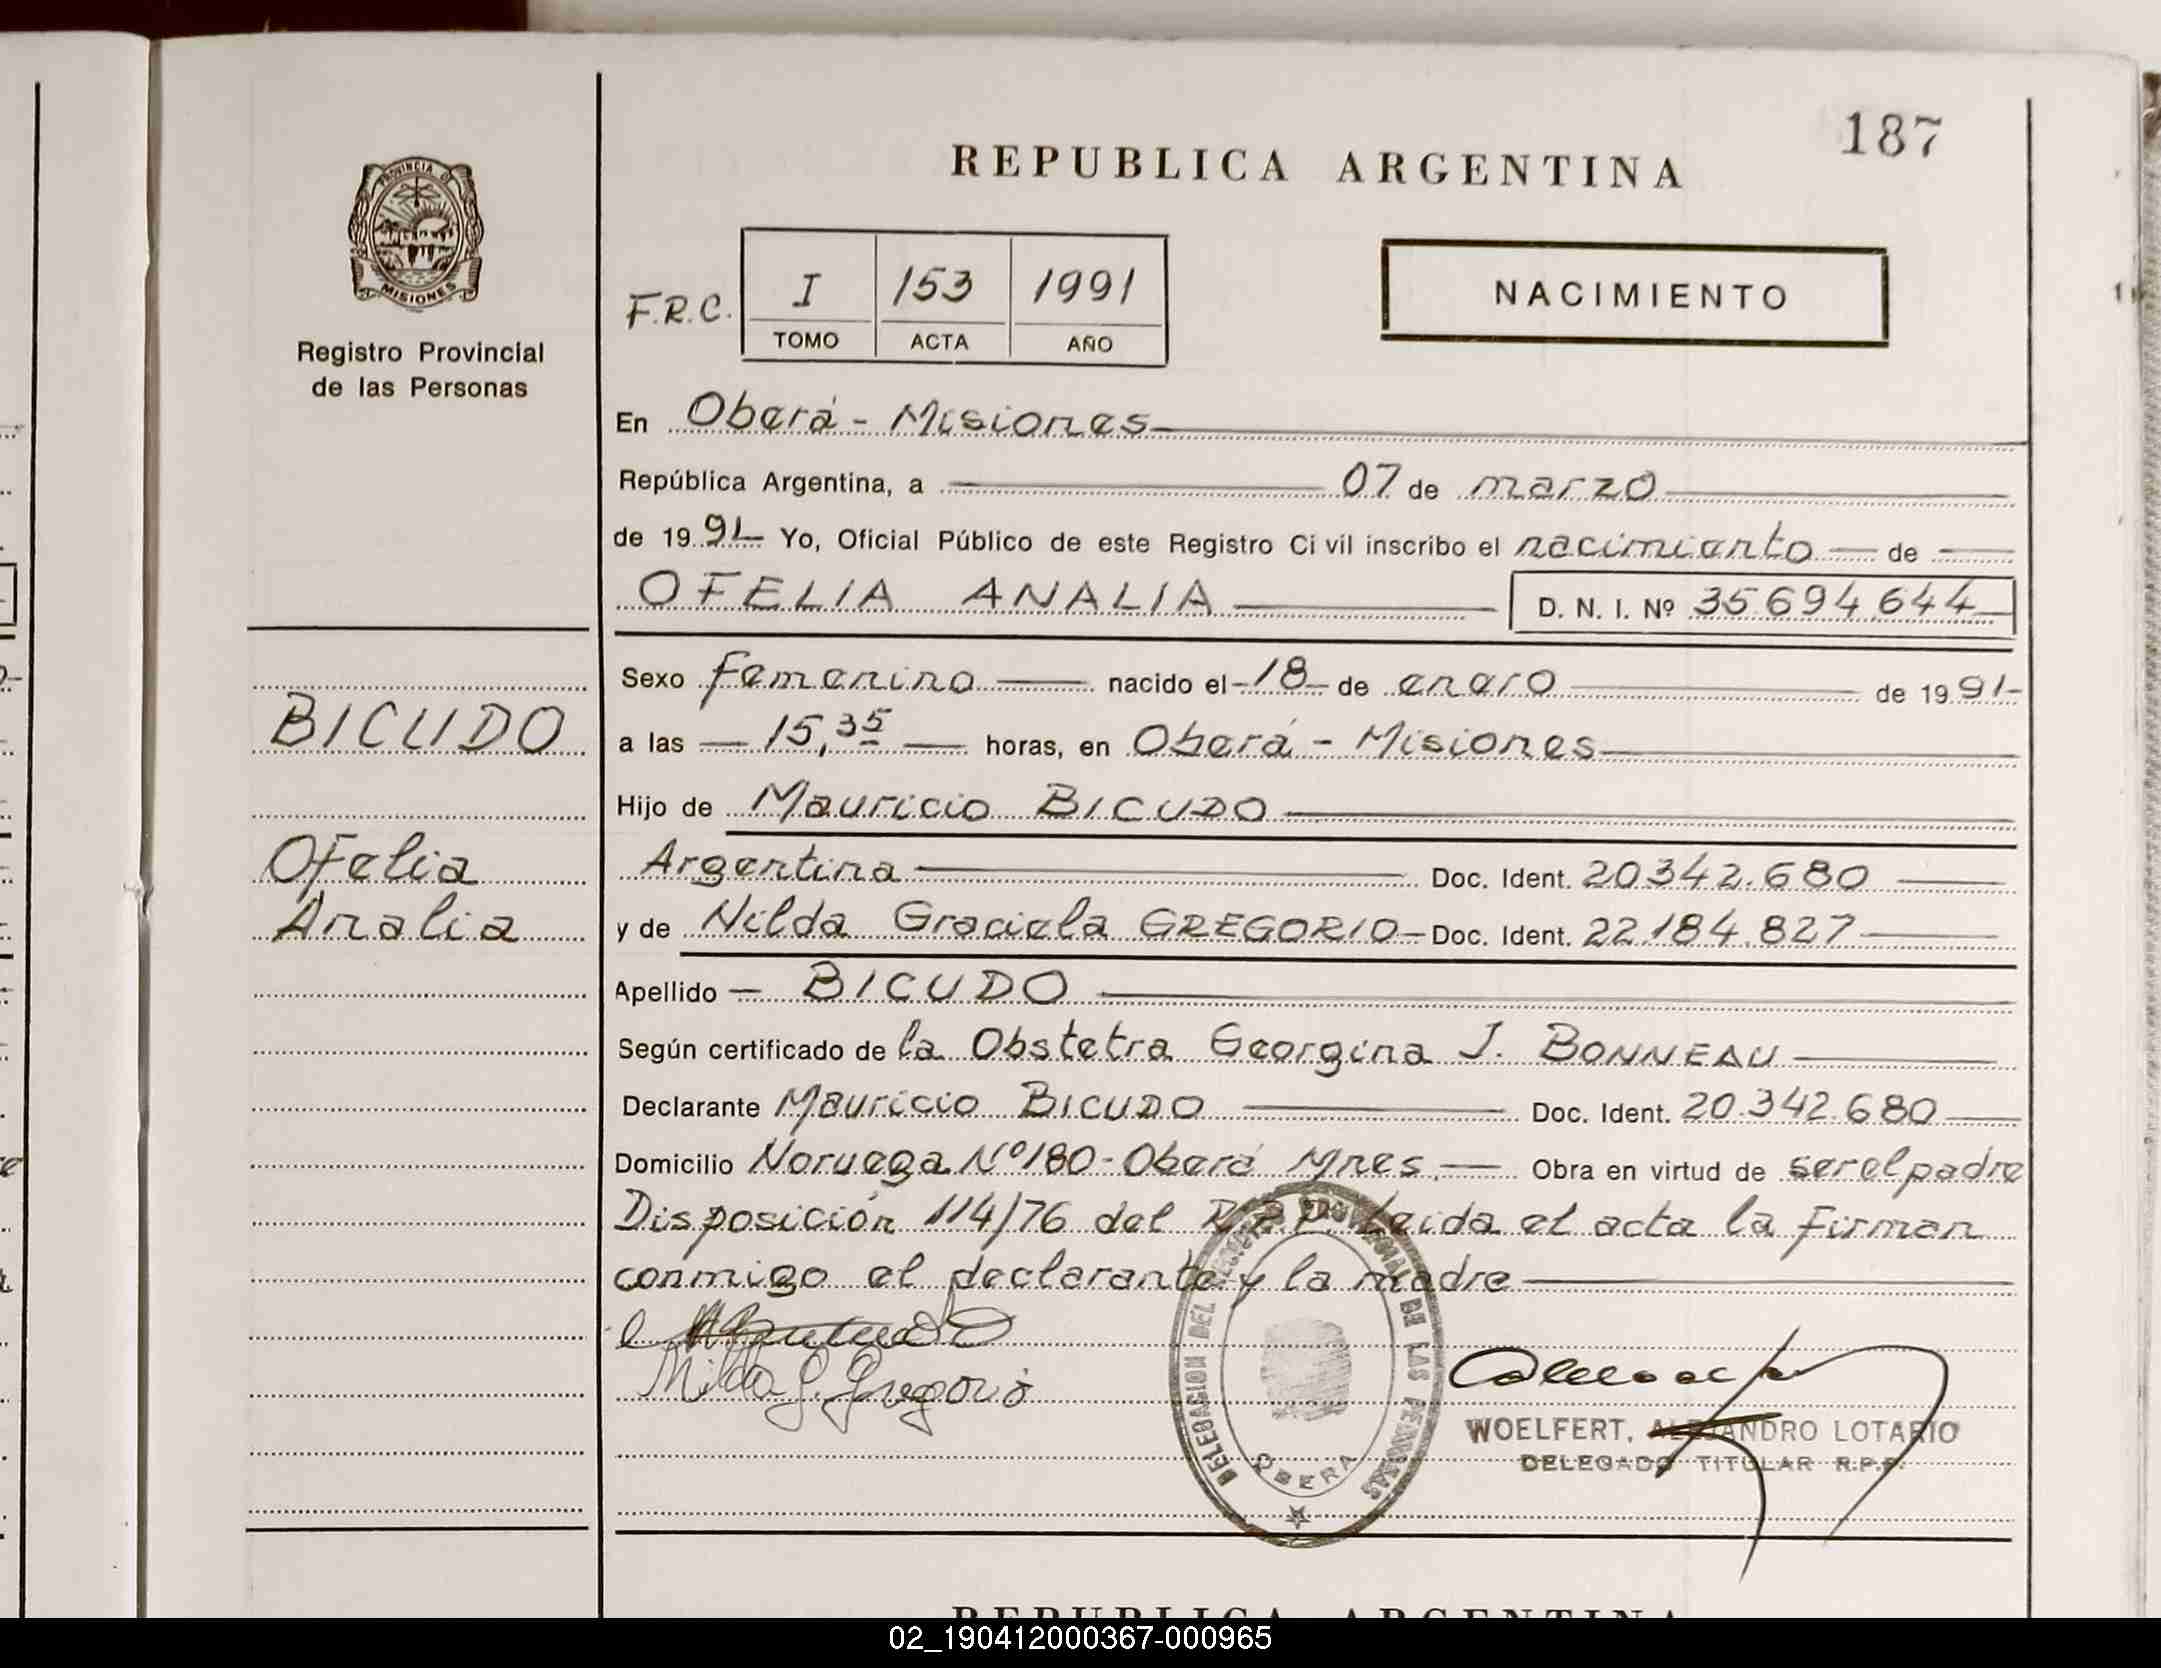 187
REPUBLICA ARGENTINA
PROVINCIA DE
MISIONES
Registro Provincial
de las Personas
F.R.C.
I 153 1991
TOMO ACTA AÑO
NACIMIENTO
En Oberá - Misiones
República Argentina, a 07 de marzo
de 1991 Yo, Oficial Público de este Registro Civil inscribo el nacimiento de
OFELIA ANALIA D. N. I. Nº 35.694.644
Sexo Femenino nacido el 18 de enero de 1991
BICUDO
a las 15,35 horas, en Oberá - Misiones
Hijo de Mauricio BICUDO
Ofelia
Argentina Doc. Ident. 20342.680
Analia
y de Nilda Graciela GREGORIO Doc. Ident. 22.184.827
Apellido BICUDO
Según certificado de la Obstetra Georgina J. BONNEAU
Declarante Mauricio BICUDO Doc. Ident. 20.342.680
Domicilio Noruega Nº 180 - Oberá Mnes. Obra en virtud de ser el padre
Disposición 114/76 del R.P.P. Leida el acta la firman
conmigo el declarante y la madre
Nilda G. Gregorio
DELEGACION DEL REGISTRO PROVINCIAL DE LAS PERSONAS
OBERA
WOELFERT, ALEJANDRO LOTARIO
DELEGADO TITULAR R.P.P.
REPUBLICA ARGENTINA
02_190412000367-000965